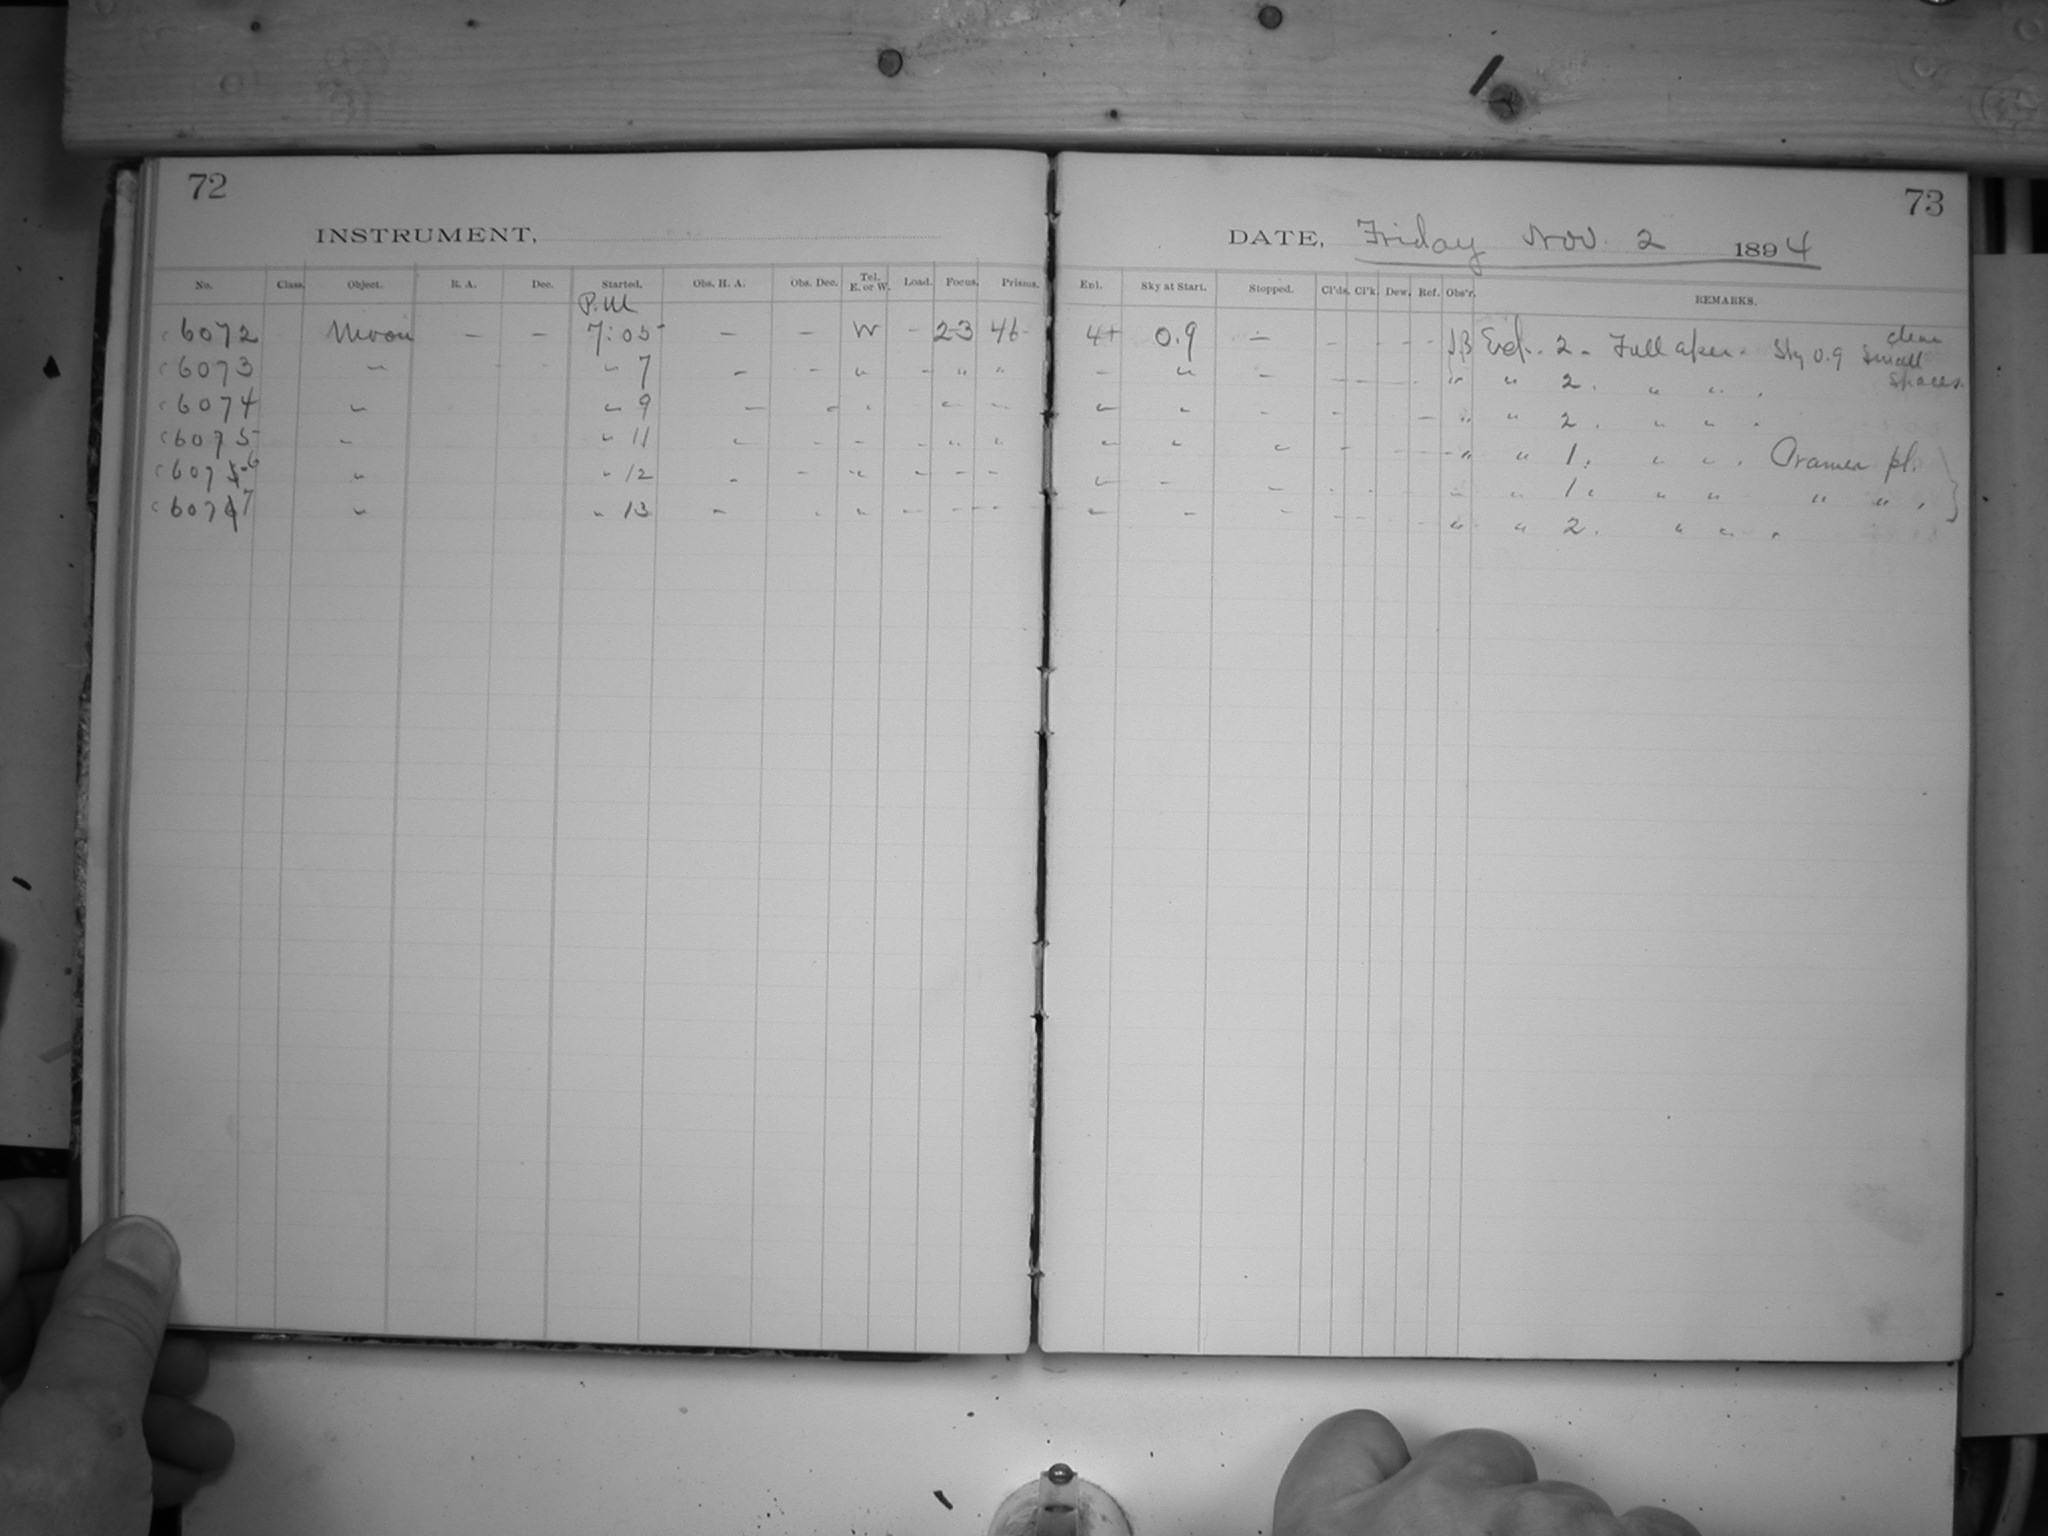 72
INSTRUMENT,
No. Class. Object. R. A. Dec. Started. Obs. H. A. Obs. Dec. Tel. E. or W. Load. Focus. Prisms.
P.M
c 6072 Moon — — 7:05 — — W - 23 46
c 6073 " - - " 7 - - " - " "
c 6074 " " 9 - - " - -
c 6075 " " 11 - - - - " "
c 6076 " " 12 - - " - - -
c 6077 " " 13 - - " - - -
73
DATE, Friday Nov. 2 1894
Enl. Sky at Start. Stopped. Cl'ds. Cl'k. Dew. Ref. Obs'r. REMARKS.
4+ 0.9 — - - - - Exp. 2 - Full aper. Sky 0.9 clear small spaces.
- " - - - - - " " 2. " " .
" " - - - " " 2. " " .
" " - - - - - " " 1. " " . Cramer pl.
" - - - - - " " 1. " " " " .
" - - - - - " " 2. " " .